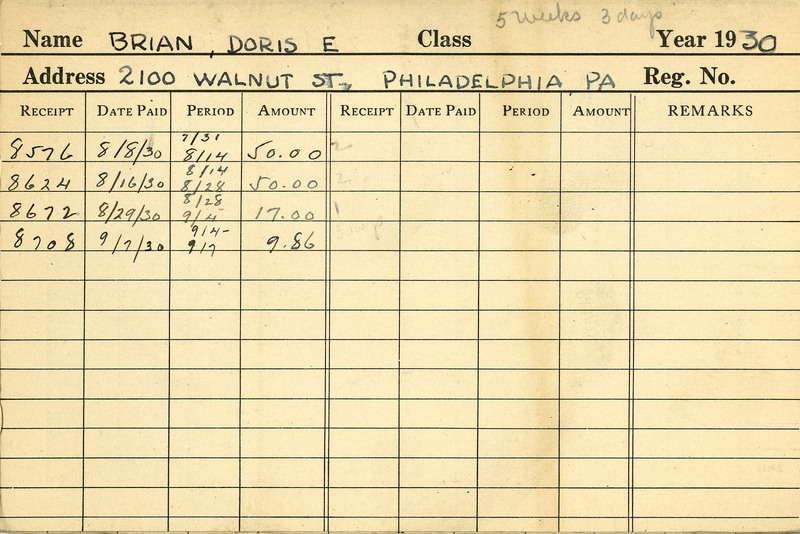 5 weeks 3 days
Name BRIAN, DORIS E Class Year 1930
Address 2100 WALNUT ST., PHILADELPHIA, PA Reg. No.
RECEIPT DATE PAID PERIOD AMOUNT RECEIPT DATE PAID PERIOD AMOUNT REMARKS
7/31
8576 8/8/30 8/14 50.00 2
8/14
8624 8/16/30 8/28 50.00 2
8/28
8672 8/29/30 9/4 17.00 1
9/4- 3 days
8708 9/7/30 9/7 9.86